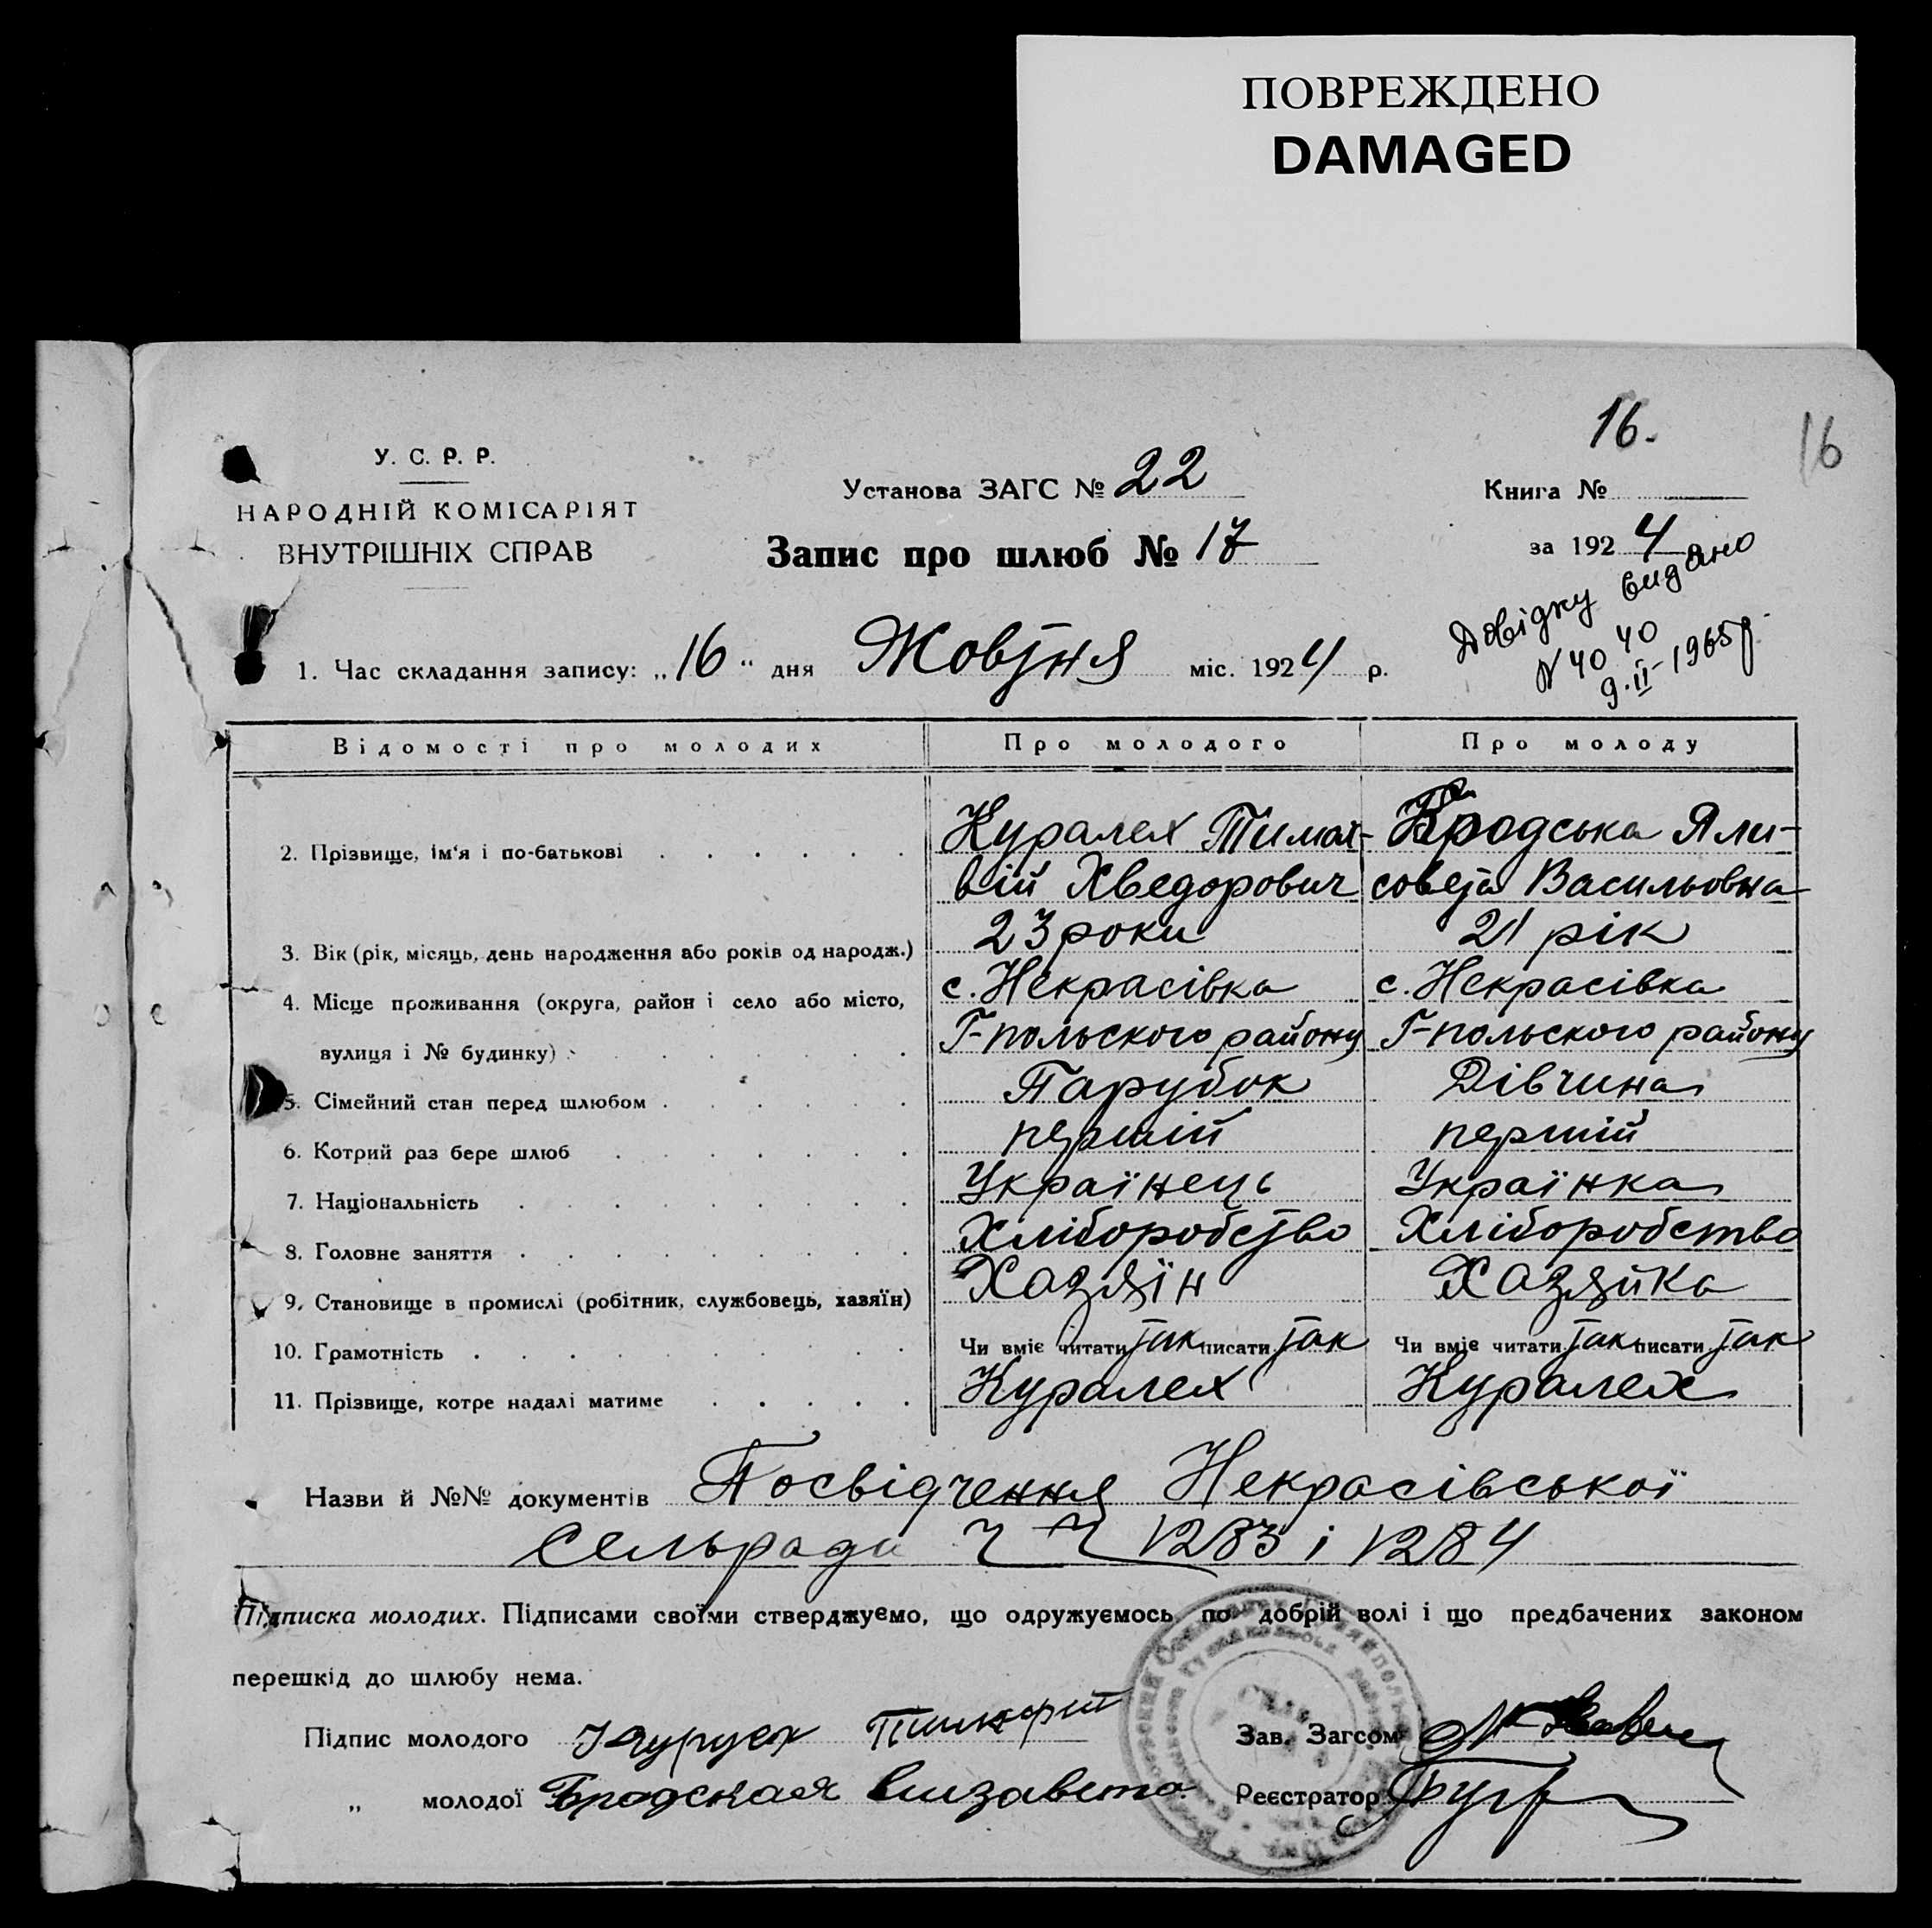 ПОВРЕЖДЕНО
DAMAGED
16.
16
У. С. Р. Р.
НАРОДНІЙ КОМІСАРІЯТ
ВНУТРІШНІХ СПРАВ
Установа ЗАГС № 22
Запис про шлюб № 17
Книга №
за 1924
Довідку видано
N 40 40
9.II-1965р.
1. Час складання запису: „16" дня Жовтня міс. 1924 р.
Відомості про молодих Про молодого Про молоду
2. Прізвище, ім'я і по-батькові Куралех Тимах- Бродська Яли-
вій Хведорович совета Васильовна
3. Вік (рік, місяць, день народження або років од народж.) 23 роки 21 рік
4. Місце проживання (округа, район і село або місто, с. Некрасівка с. Некрасівка
вулиця і № будинку) Г-польского району Г-польского району
5. Сімейний стан перед шлюбом Парубок Дівчина
6. Котрий раз бере шлюб перший перший
7. Національність Українець Українка
8. Головне заняття Хліборобство Хліборобство
9. Становище в промислі (робітник, службовець, хазяїн) Хазяїн Хазяйка
10. Грамотність Чи вміє читати так писати так Чи вміє читати так писати так
11. Прізвище, котре надалі матиме Куралех Куралех
Назви й №№ документів Посвідчення Некрасівської
сельради ч ч 1283 і 1284
Підписка молодих. Підписами своїми стверджуємо, що одружуємось по добрій волі і що предбачених законом
перешкід до шлюбу нема.
Підпис молодого Зав. Загсом
„ молодої Бродская Елизавета Реєстратор